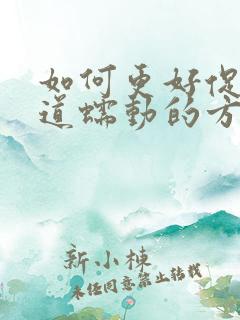 如何更好促
道蠕动的方
新小棟
未经同意禁止转载